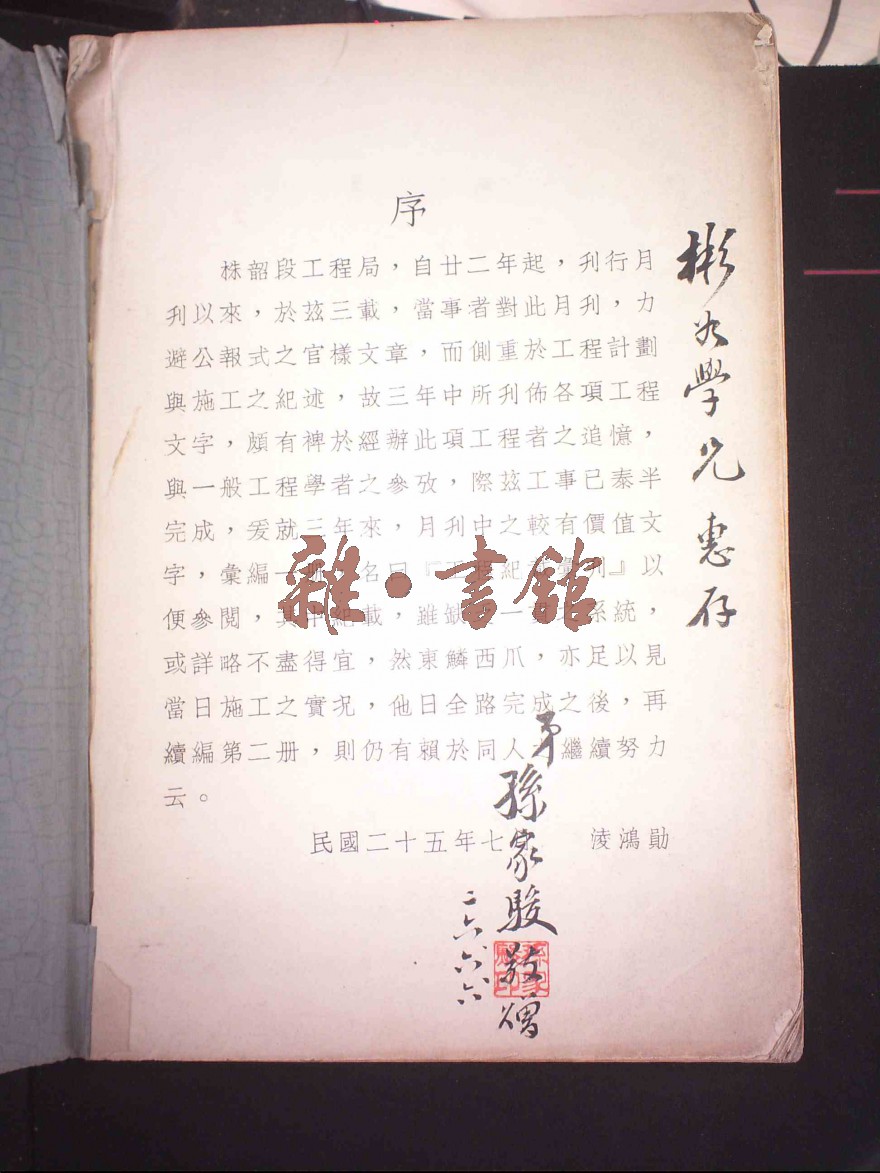 序
株韶段工程局，自廿二年起，刋行月
刋以來，於玆三載，當事者對此月刋，力
避公報式之官樣文章，而側重於工程計劃
與施工之紀述，故三年中所刋佈各項工程
文字，頗有裨於經辦此項工程者之追憶，
與一般工程學者之參攷，際玆工事已泰半
完成，爰就三年來，月刋中之較有價值文
字，彙編一 名曰『 紀 刋』以
便參閱，其中紀載，雖 一 系統，
或詳略不盡得宜，然東鱗西爪，亦足以見
當日施工之實况，他日全路完成之後，再
續編第二册，則仍有賴於同人 繼續努力
云。
民國二十五年七 淩鴻勛
彬 學兄 惠存
弟 孫家駿敬贈
二六、六、六
雜·書館